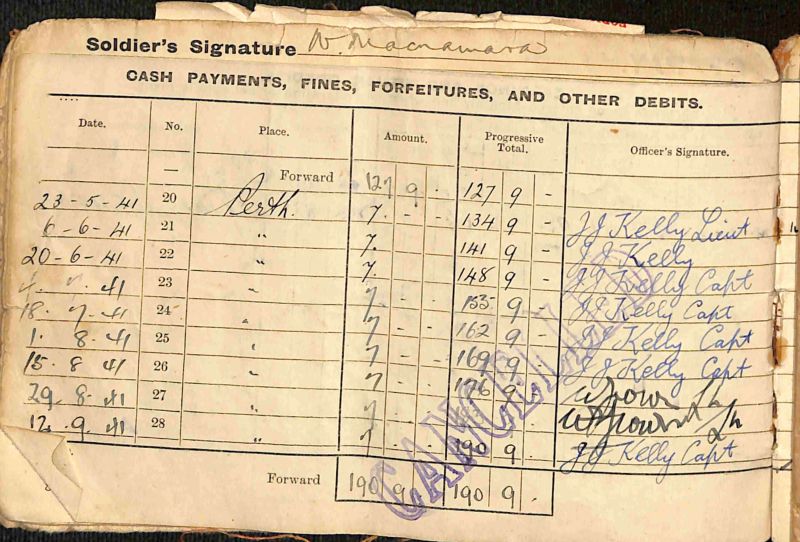 Soldier's Signature W. Macnamara
CASH PAYMENTS, FINES, FORFEITURES, AND OTHER DEBITS.
Date. No. Place. Amount. Progressive Total. Officer's Signature.
— Forward 127 9 . 127 9 -
23-5-41 20 Perth. 7 . - - 134 9 - JJ Kelly Lieut
6-6-41 21 " 7 - - 141 9 - JJ Kelly
20-6-41 22 " 7 - - 148 9 - JJ Kelly Capt
4. 7. 41 23 " 7 - - 155 9 - JJ Kelly Capt
18. 7. 41 24 " 7 - - 162 9 - JJ Kelly Capt
1. 8. 41 25 " 7 - - 169 9 - JJ Kelly Capt
15. 8 41 26 " 7 - - 176 9 -
29. 8. 41 27 " 7 - - 9
12. 9. 41 28 " 7 - - 190 9 JJ Kelly Capt
Forward 190 9 . 190 9 .
CANCELLED